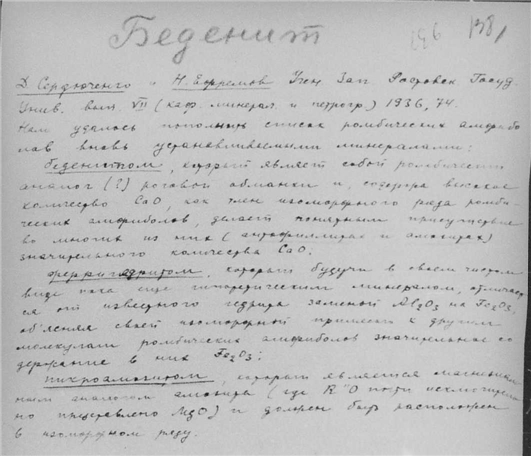 Беденит
196 1381
Д Сердюченко и Н. Ефремов Учен Зап Ростовск Госуд
Унив. вып. VII (каф. минерал. и петрогр.) 1936, 74.
Нам удалось пополнить список ромбических амфибо
лов вновь установленными минералами:
беденитом, который являет собой ромбический
аналог (?) роговой обманки и, содержа высокое
количество CaO, как член изоморфного ряда ромби-
ческих амфиболов, делает понятным присутствие
во многих из них (антофиллитах и амозитах)
значительного количества CaO.
ферригедритом, который будучи в своем чистом
виде пока еще гипотетическим минералом, отличает
ся от известного гедрита заменой Al2O3 на Fe2O3,
об'ясняя своей изоморфной примесью к другим
молекулам ромбических амфиболов значительное со
держание в них Fe2O3;
пикроамозитом, который является магнезиаль
ным аналогом амозита (где R"O почти исключитель
но представлено MgO) и должен быть расположен
в изоморфном ряду.